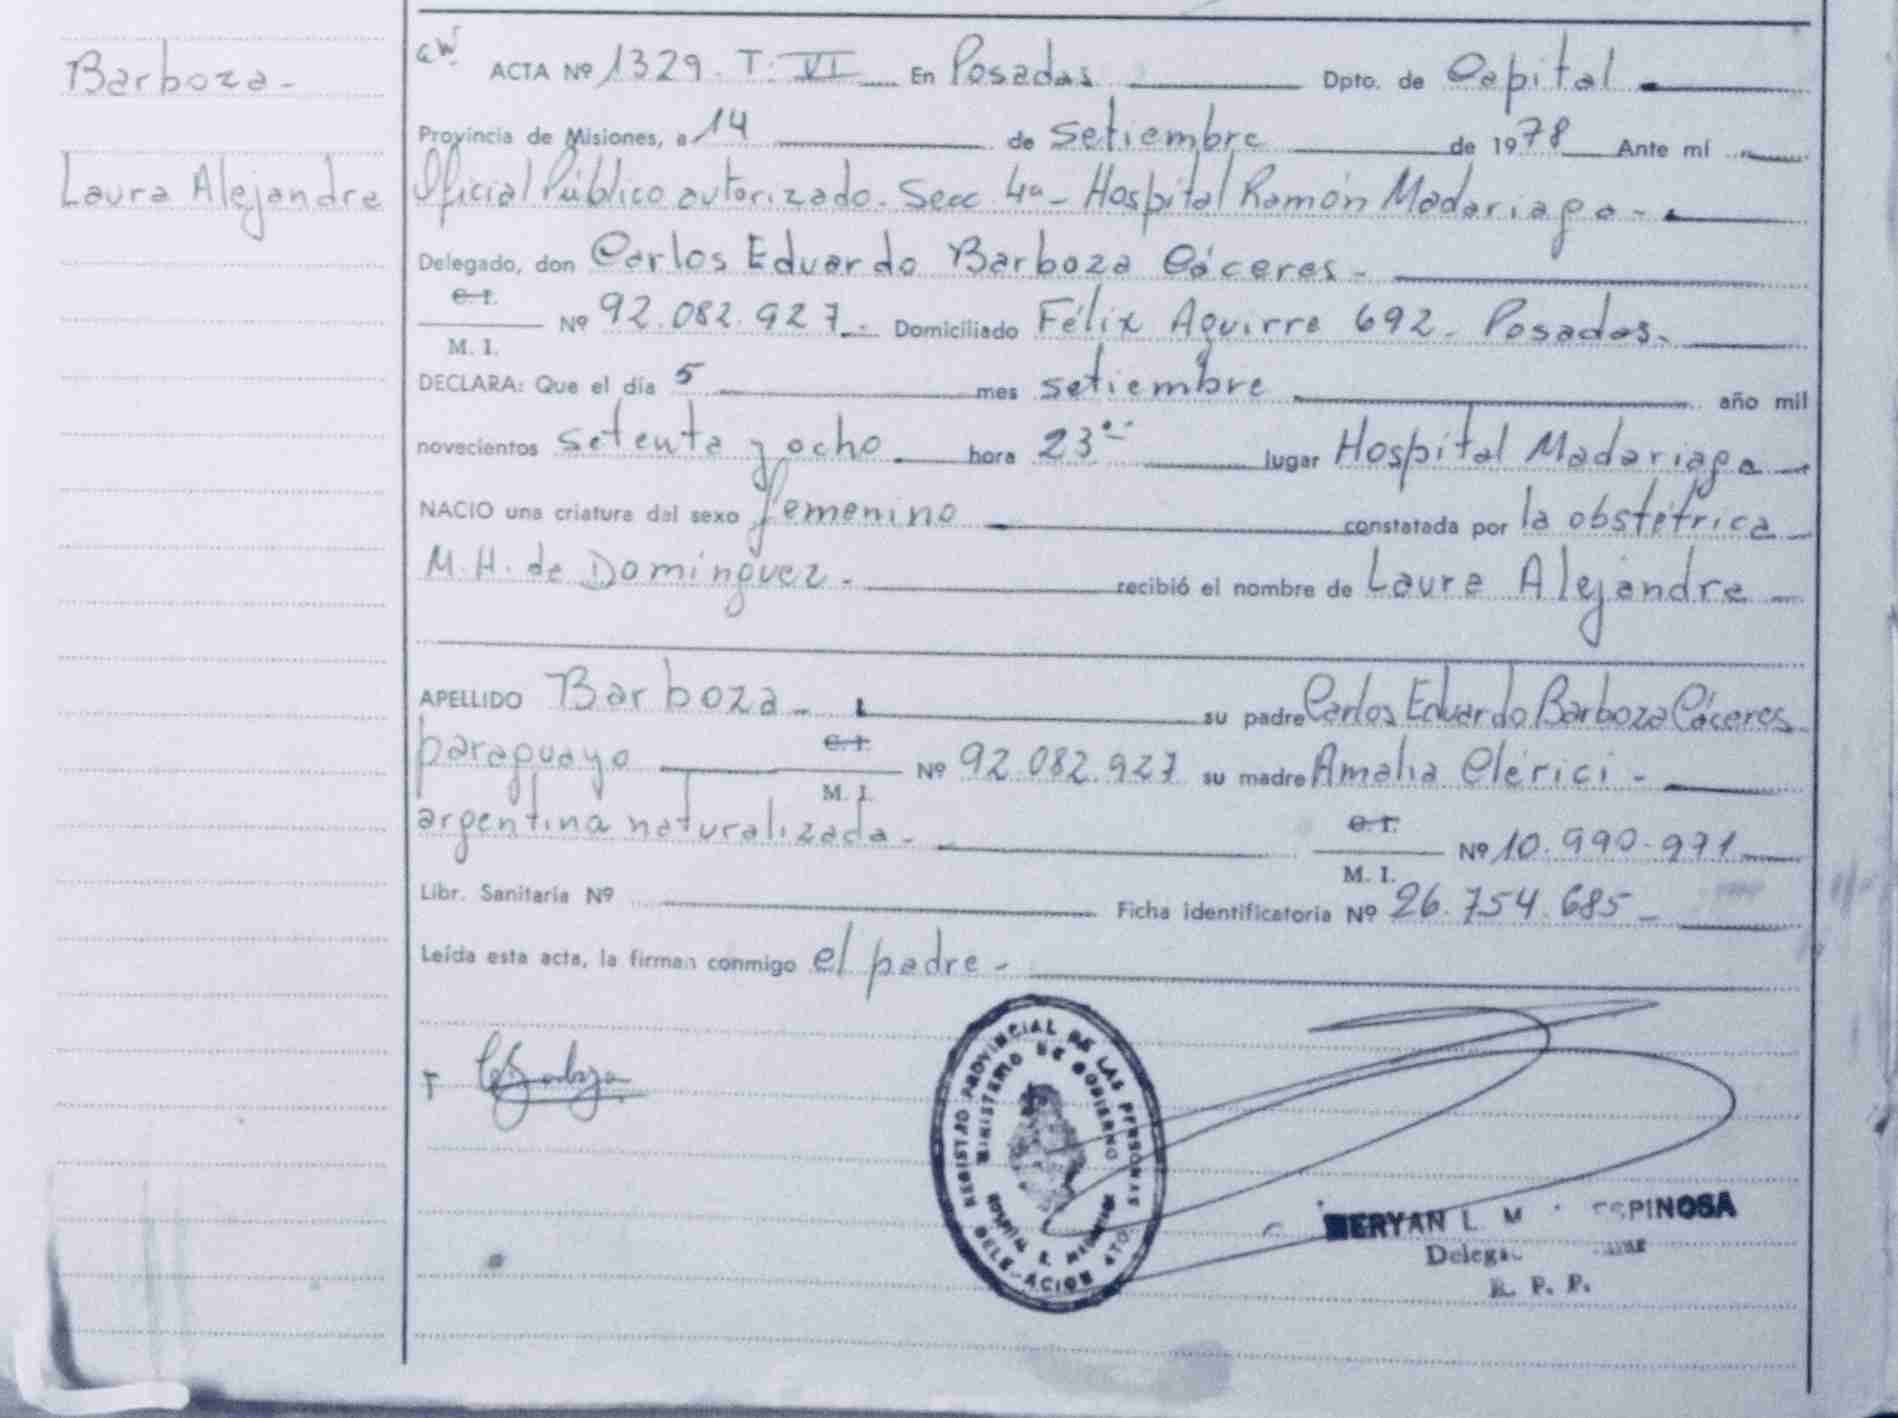 Barboza-
Laura Alejandra
ACTA Nº 1329. T: VI En Posadas Dpto. de Capital
Provincia de Misiones, a 14 de setiembre de 1978 Ante mí
Oficial Público autorizado. Secc 4ª - Hospital Ramón Madariaga -
Delegado, don Carlos Eduardo Barboza Cáceres -
C. I.
Nº 92.082.927.- Domiciliado Félix Aguirre 692 - Posadas -
M. I.
DECLARA: Que el día 5 mes setiembre año mil
novecientos setenta y ocho hora 23 lugar Hospital Madariaga
NACIO una criatura del sexo femenino constatada por la obstétrica
M. H. de Domínguez - recibió el nombre de Laura Alejandra
APELLIDO Barboza - su padre Carlos Eduardo Barboza Cáceres
paraguayo C. I. Nº 92.082.927 su madre Amalia Clérici -
M. I.
argentina naturalizada - C. I. Nº 10.990.971
M. I.
Libr. Sanitaria Nº Ficha identificatoria Nº 26.754.685 -
Leída esta acta, la firman conmigo el padre -
REGISTRO PROVINCIAL DE LAS PERSONAS
MINISTERIO DE GOBIERNO
DELEGACION
ERYAN L. M ESPINOSA
R. P. P.